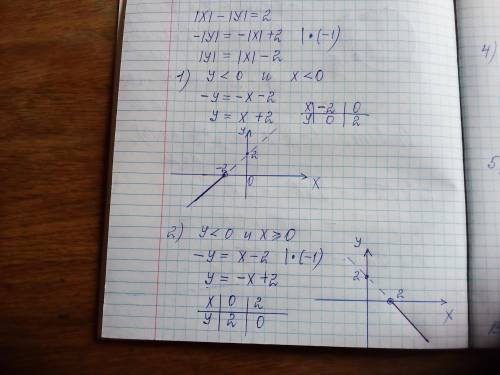 |X| - |Y| = 2
-|Y| = -|X| + 2 | • (-1)
|Y| = |X| - 2
1) Y < 0 и X < 0
-Y = -X - 2
Y = X + 2
X -2 0
Y 0 2
Y
2
-2
0
X
2) Y < 0 и X ⩾ 0
-Y = X - 2 | • (-1)
Y = -X + 2
X 0 2
Y 2 0
Y
2
2
X
4)
5